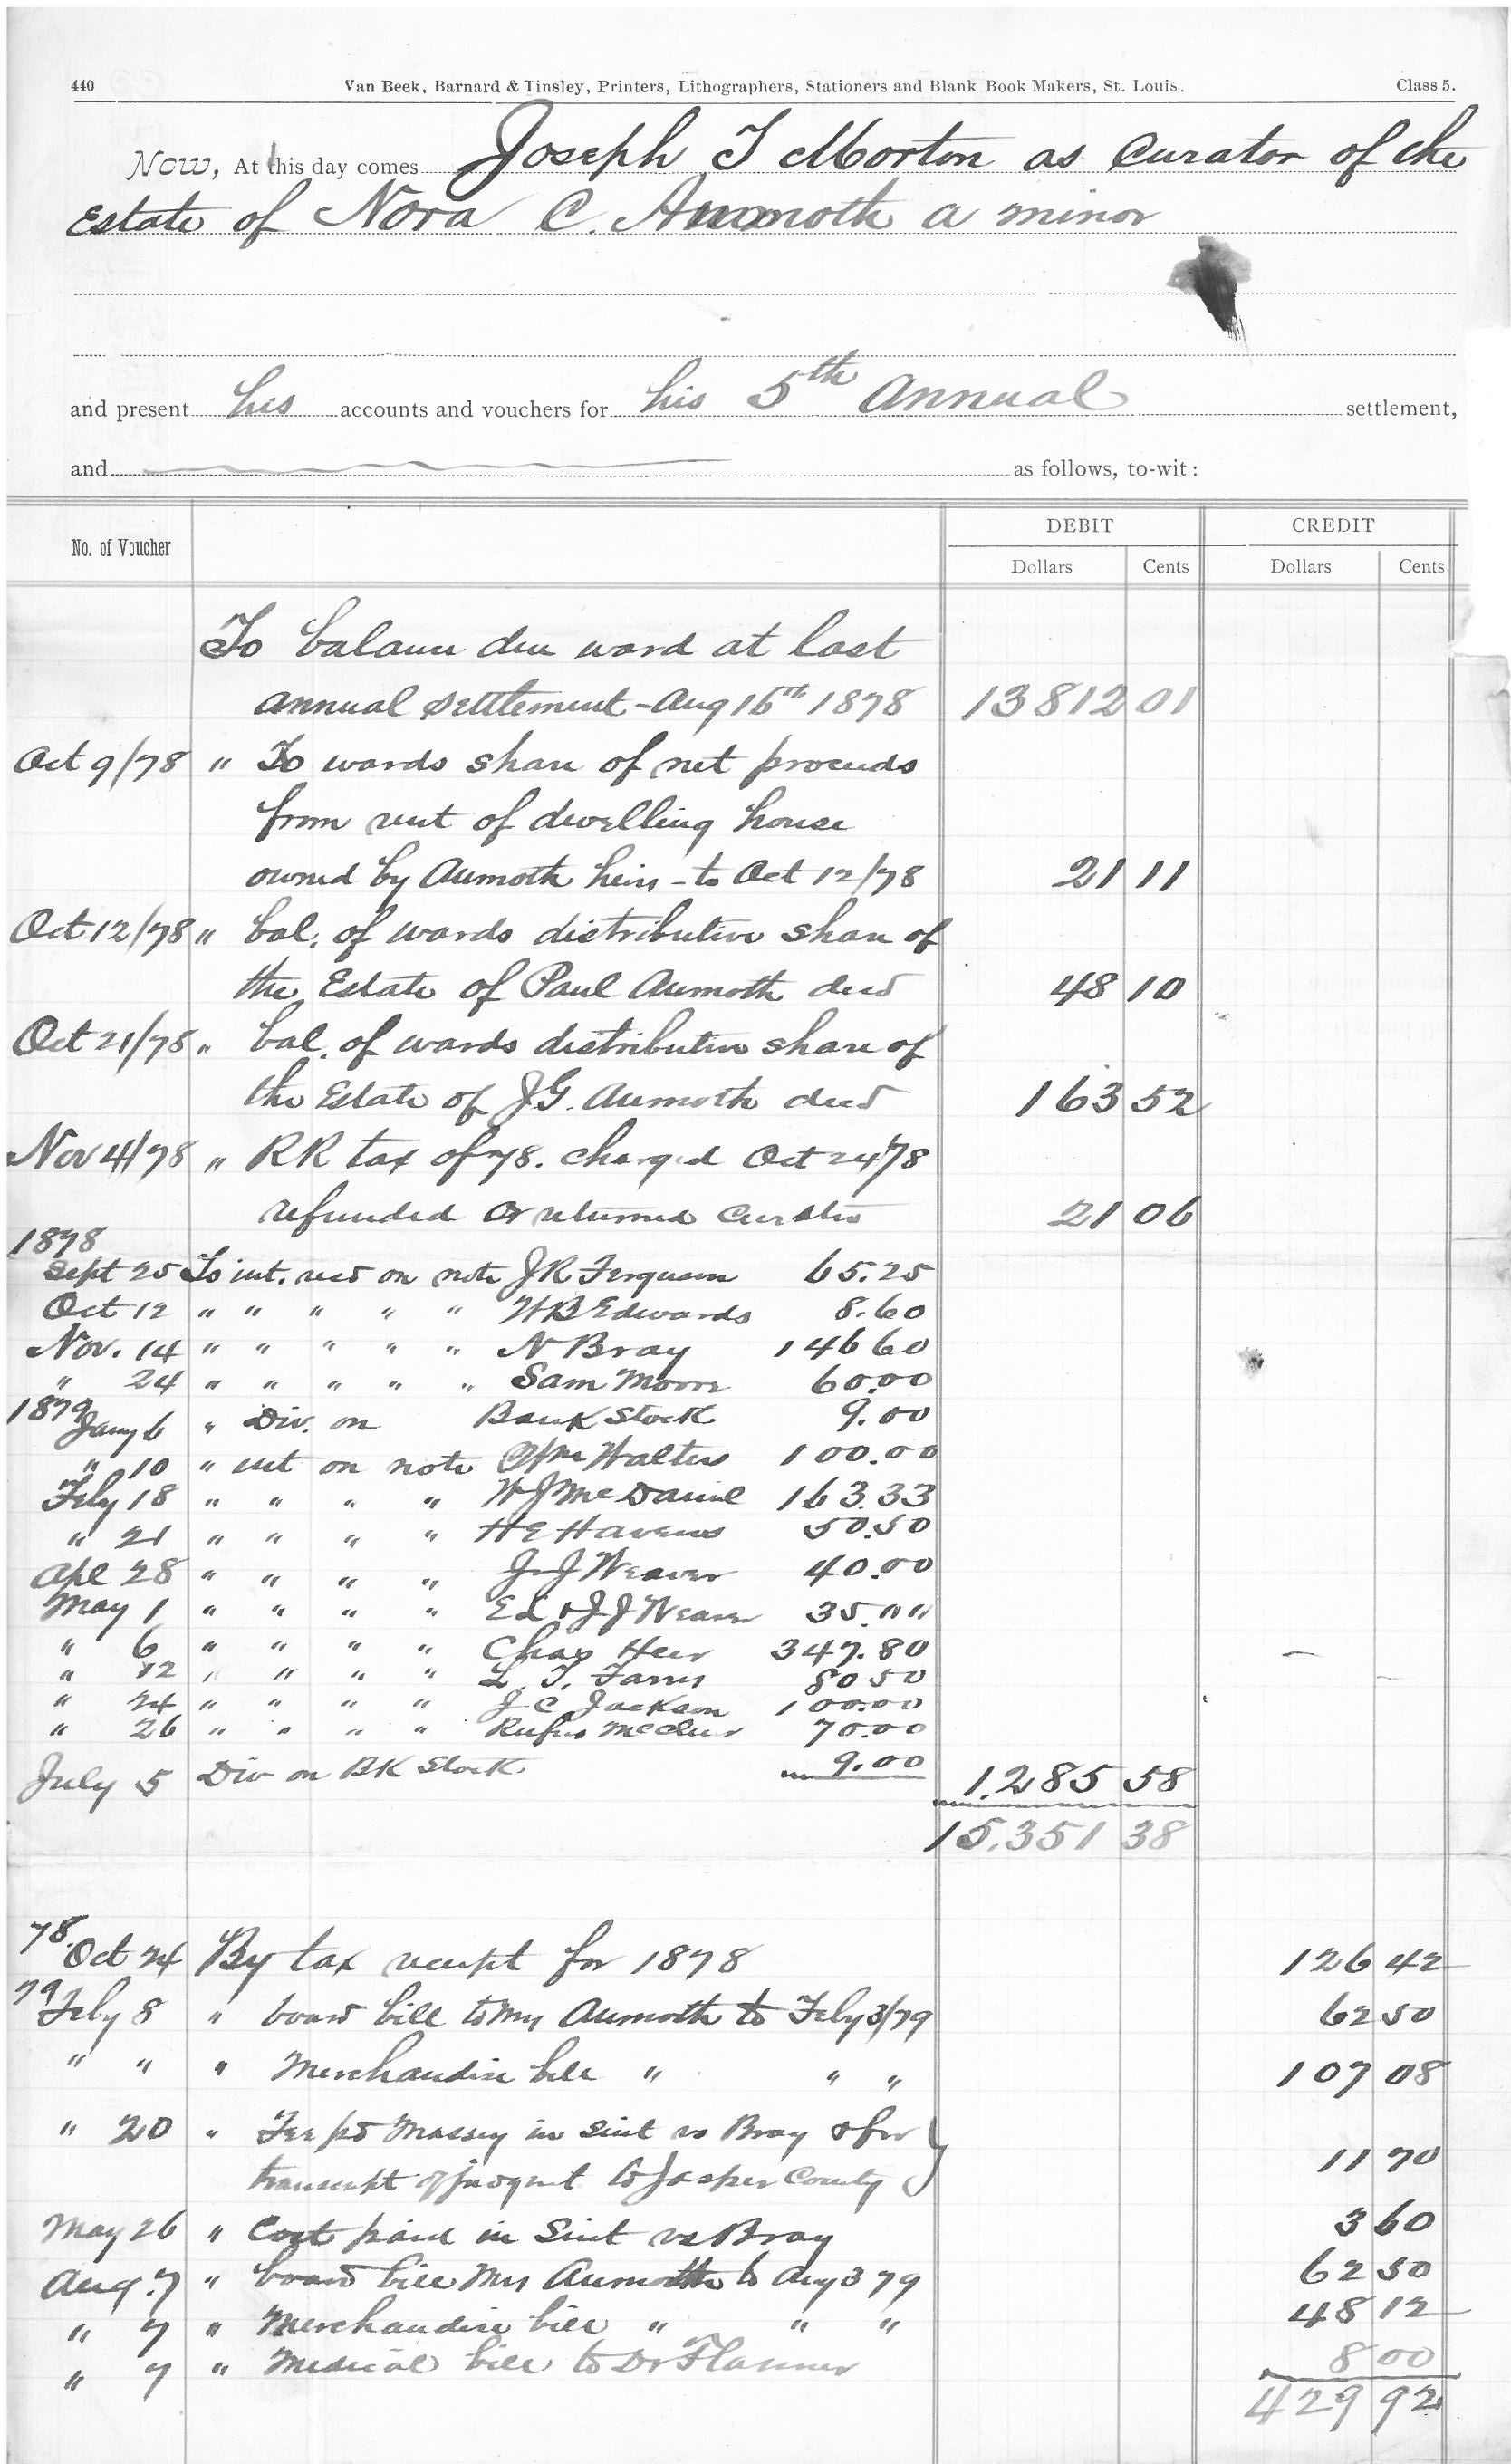 440 Van Beek, Barnard & Tinsley, Printers, Lithographers, Stationers and Blank Book Makers, St. Louis. Class 5.
Now, At this day comes Joseph T Morton as Curator of the
Estate of Nora C. Aumoth a minor
and present his accounts and vouchers for his 5th Annual settlement,
and as follows, to-wit:
DEBIT CREDIT
No. of Voucher
Dollars Cents Dollars Cents
To balance due ward at last
annual settlement - Aug 16th 1878 13812 01
Oct 9/78 " To wards share of net proceeds
from rent of dwelling house
owned by Aumoth heirs - to Oct 12/78 21 11
Oct 12/78 " bal. of wards distributive share of
the Estate of Paul Aumoth decd 48 10
Oct 21/78 " bal. of wards distributive share of
the Estate of J.G. Aumoth decd 163 52
Nov 4/78 " RR tax of 78. charged Oct 24/78
refunded or returned 21 06
1878
Sept 25 To int. recd on note J R Ferguson 65.25
Oct 12 " " " " " W B Edwards 8.60
Nov. 14 " " " " " N Bray 146 60
" 24 " " " " " Sam Moore 60.00
1879
Jany 6 " Div. on Bank Stock 9.00
" 10 " int on note Walters 100.00
Feby 18 " " " " W J McDaniel 163.33
" 21 " " " " H E Havens 50.50
Apl 28 " " " " J J Weaver 40.00
May 1 " " " " Ed & J J Weaver 35.""
" 6 " " " " Chas Heer 347.80
" 12 " " " " L. T. Farris 80 50
" 24 " " " " J C Jackson 100.00
" 26 " " " " Rufus 70.00
July 5 Div on BK Stock 9.00 1.285 58
15.351 38
78. Oct 24 By tax receipt for 1878 126 42
79 Feby 8 " board bill to Mrs Aumoth to Feby 3/79 62 50
" " " Merchandise bill " " " 107 08
" 20 " Fee pd Massey in Suit vs Bray & for
transcript of to Jasper County 11 70
May 26 " Cost paid in Suit vs Bray 3 60
Aug. 7 " board bill Mrs Aumoth to Aug 3 79 62 50
" 7 " Merchandise bill " " " 48 12
" 7 " Medical bill to Dr 8 00
429 92